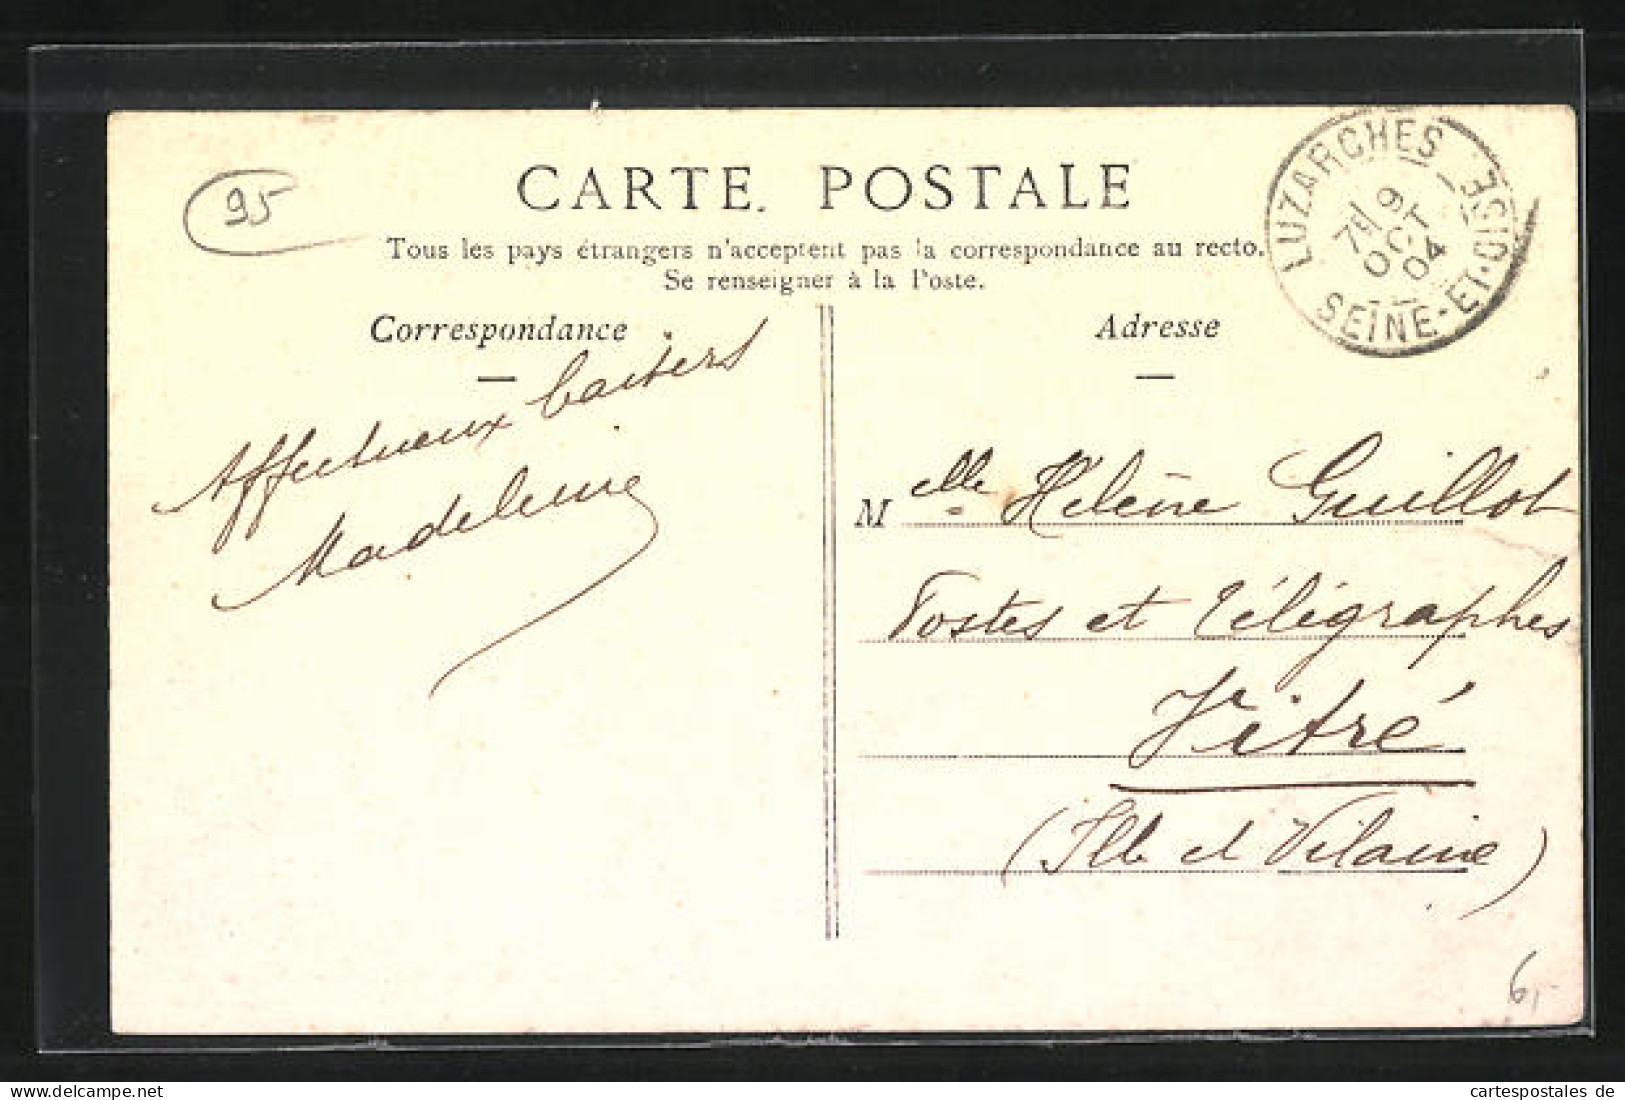 95
CARTE POSTALE
Tous les pays étrangers n'acceptent pas la correspondance au recto.
Se renseigner à la Poste.
Correspondance
Affectueux baisers
Madeleine
Adresse
LUZARCHES
7H 9
OCT
04
SEINE-ET-OISE
Melle Hélène Guillot
Postes et Télégraphes
Vitré
(Ille et Vilaine)
6,-
www.delcampe.net
cartespostales de